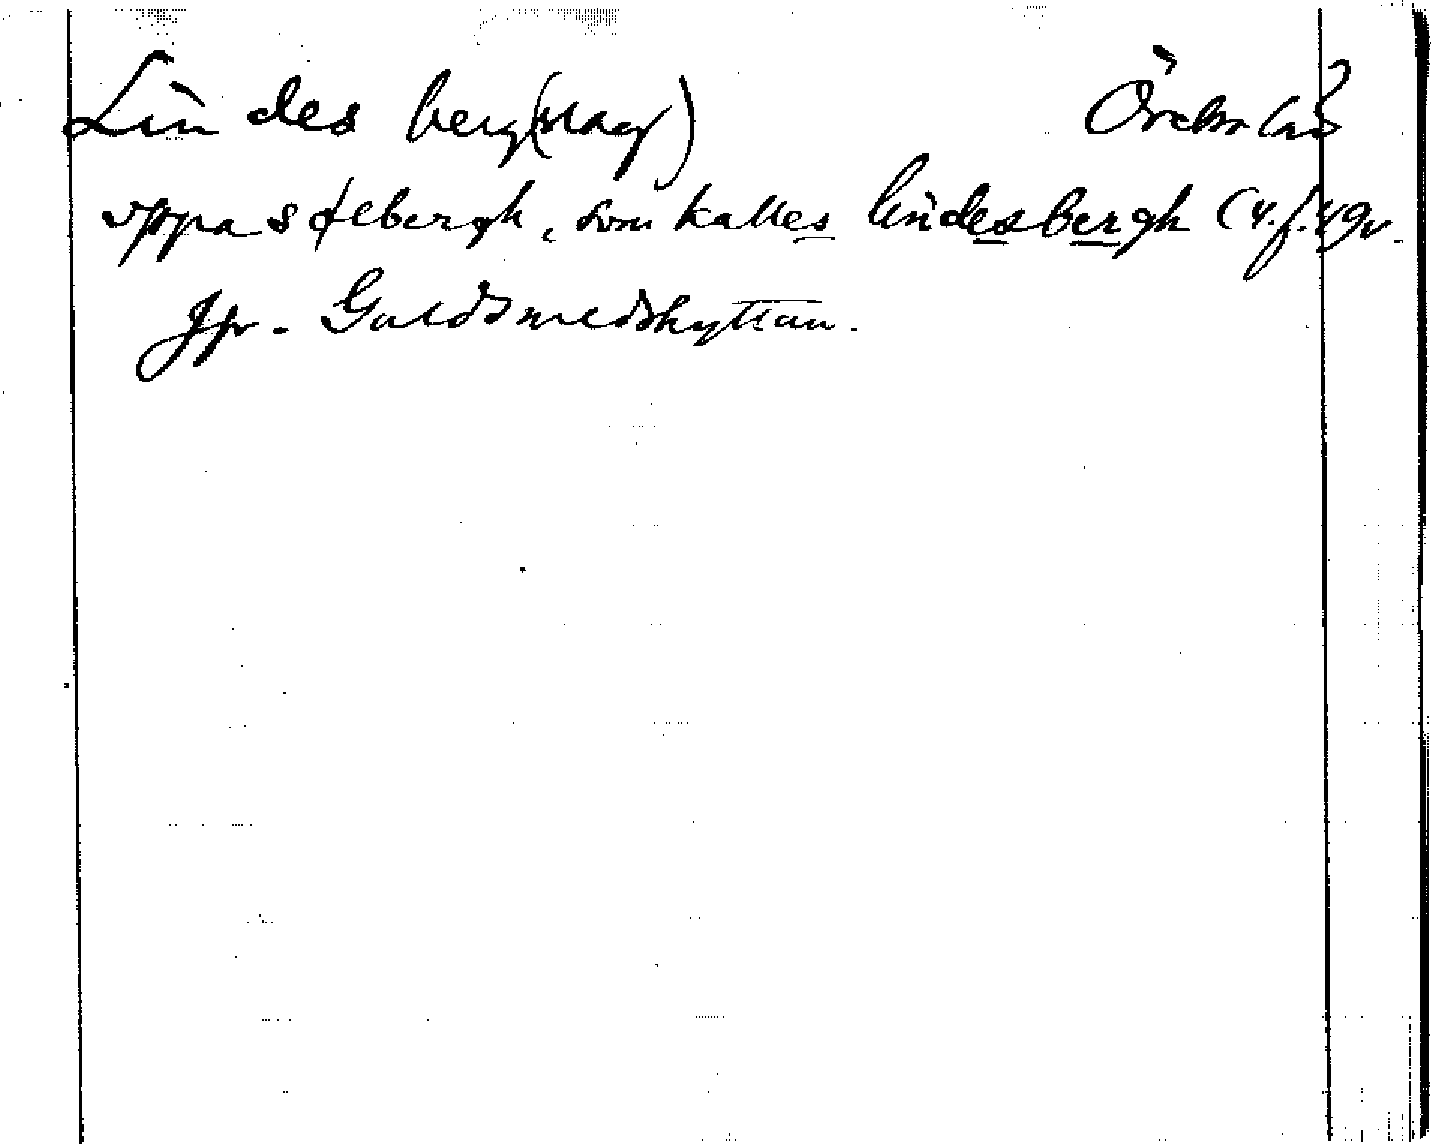 Lindesberg(slag) Örebro län
vppa sølbergh, som kalles lindesbergh (4. f. 49v.
Jfr. Guldsmedshyttan.